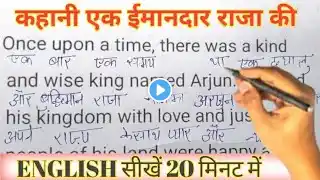 कहानी एक ईमानदार राजा की
Once upon a time, there was a kind
एक बार एक समय था एक दयालु
and wise king named Arjun
और बुद्धिमान राजा अरजुन
his kingdom with love and just
अपने राज्य के साथ प्यार और
people of his land were happy a
ENGLISH सीखें 20 मिनट में